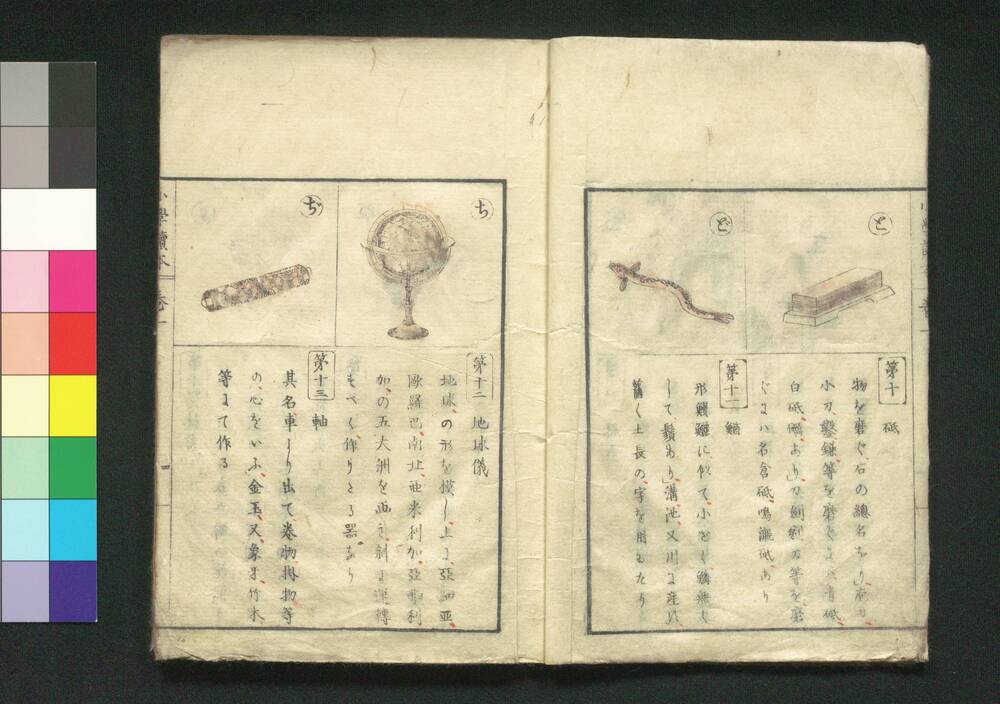 と
ど
第十
砥
物を磨ぐ石の總名なり、
小刀、鑿鎌等を磨ぐには青砥、
白砥、礪あり、刀剃刀等を磨
ぐには名倉砥、鳴瀧砥、あり
第十一
鰌
形鰻鱺に似て、小さく鱗無く
して、鬚あり、溝池、又川に産し
舊く土長の字を用ゐたり
ち
ぢ
第十二
地球儀
地球、の形を模し、上に、亞細亞、
歐羅巴、南北、亞米利加、亞弗利
加、の五大洲を画き、斜に運轉
すべく、作りたる器なり
第十三
軸
其名、車より出て、卷物、掛物等
の、心をいふ、金玉、又象牙、竹木
等にて作る